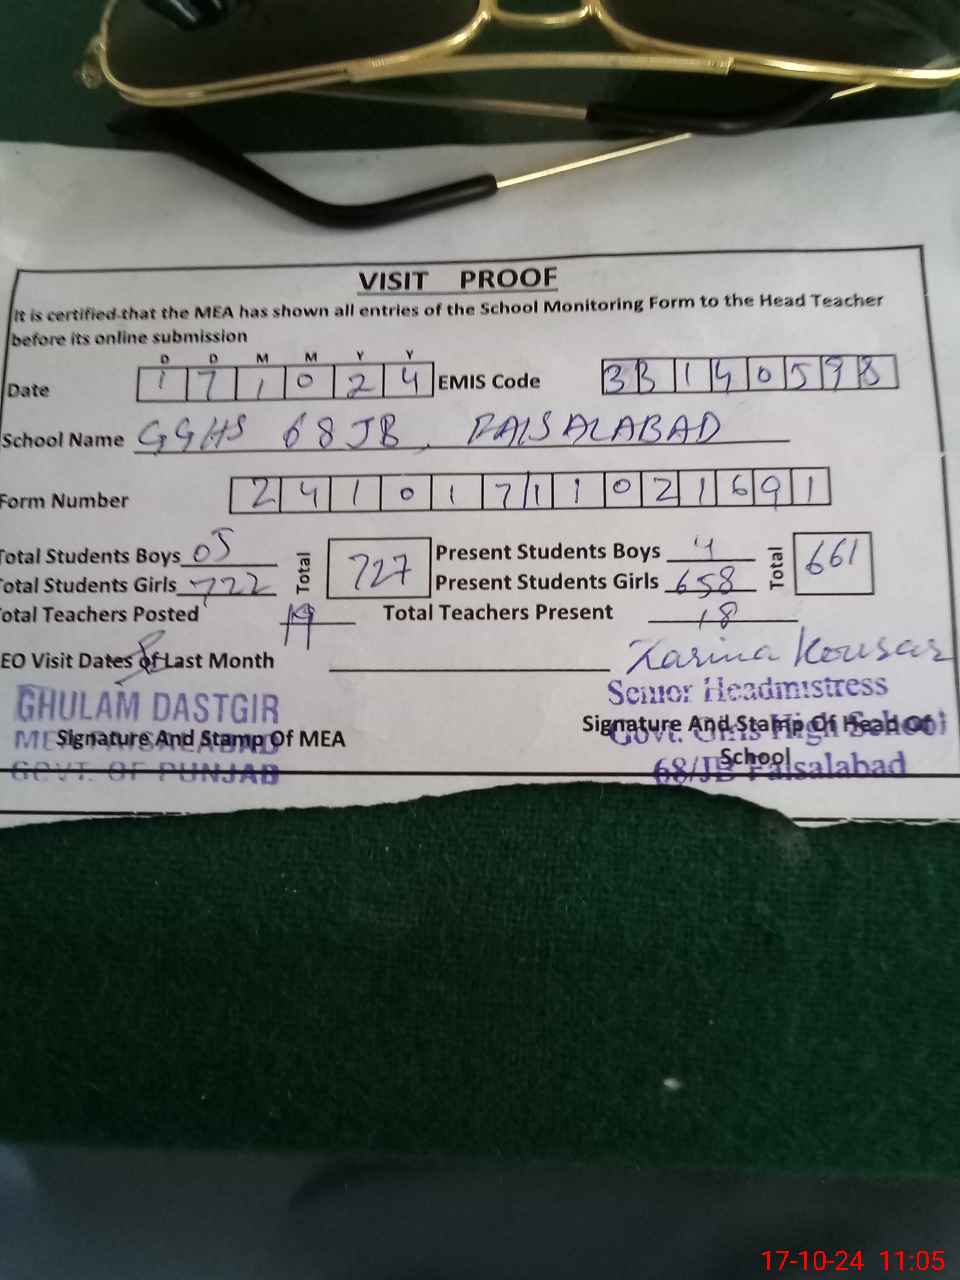 VISIT PROOF
It is certified that the MEA has shown all entries of the School Monitoring Form to the Head Teacher
before its online submission
D D M M Y Y
Date 1 7 1 0 2 4 EMIS Code 3 3 1 4 0 5 9 8
School Name GGHS 68 JB, FAISALABAD
Form Number 2 4 1 0 1 7 1 1 0 2 1 6 9 1
Total Students Boys 05 Total 727 Present Students Boys 4 Total 661
Total Students Girls 722 Present Students Girls 658
Total Teachers Posted 19 Total Teachers Present 18
EO Visit Dates of Last Month
Zarina Kousar
GHULAM DASTGIR Senior Headmistress
Signature And Stamp Of MEA Signature And Stamp Of Head Of
School
Govt. Girls High School
GOVT. OF PUNJAB 68/JB Faisalabad
17-10-24 11:05